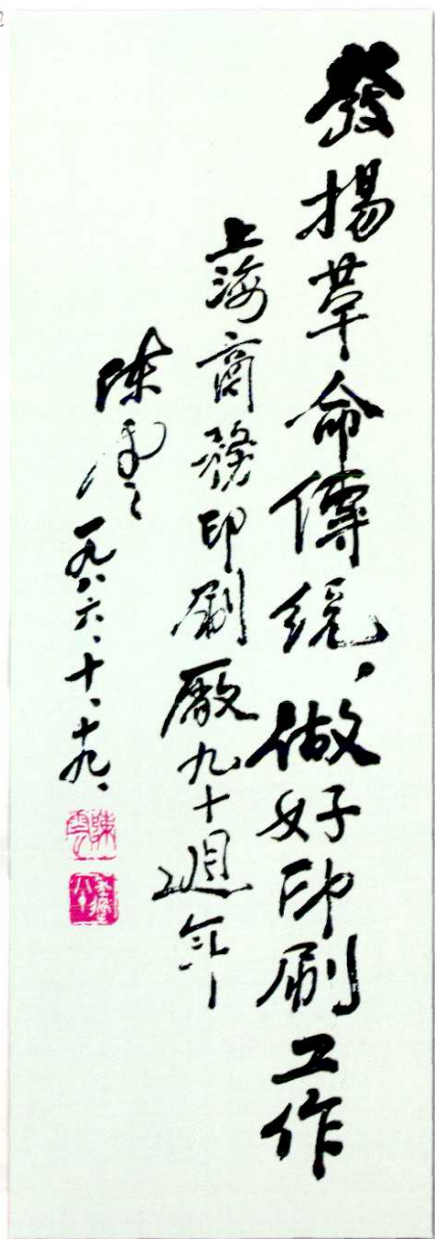 發揚革命傳統，做好印刷工作
上海商務印刷廠九十週年
陳雲
一九八六、十、十九、
陳雲